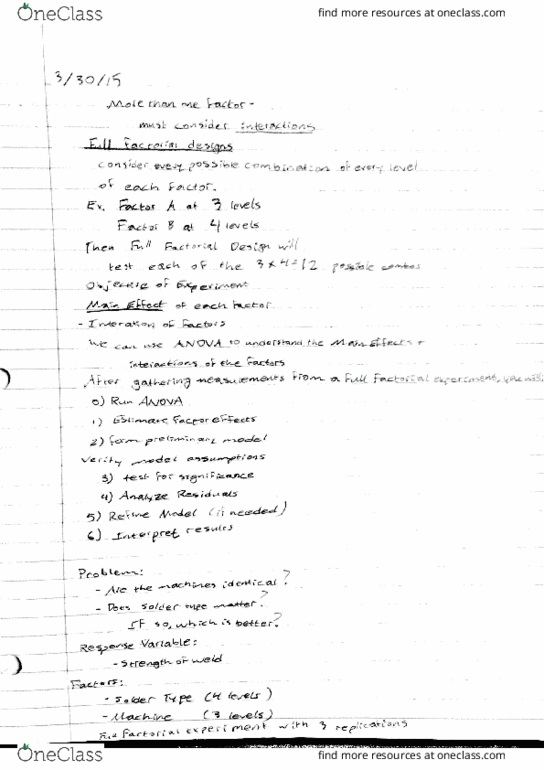 OneClass
find more resources at oneclass.com
3/30/15
More than one Factor -
must consider interactions
Full Factorial designs
consider every possible combination of every level
of each factor.
Ex. Factor A at 3 levels
Factor B at 4 levels
Then Full Factorial Design will
test each of the 3x4=12 possible combos
Objective of Experiment
Main Effect of each factor
- Interation of Factors
We can use ANOVA to understand the Main Effects +
interactions of the Factors
After gathering measurements from a Full Factorial experiment, you will:
0) Run ANOVA
1) Estimate Factor effects
2) form preliminary model
Verify model assumptions
3) test for significance
4) Analyze Residuals
5) Refine Model (if needed)
6) Interpret results
Problem:
- Are the machines identical?
- Does solder type matter?
If so, which is better?
Response Variable:
- Strength of weld
Factors:
- Solder Type (4 levels)
- Machine (3 levels)
Full Factorial experiment with 3 replications
OneClass
find more resources at oneclass.com